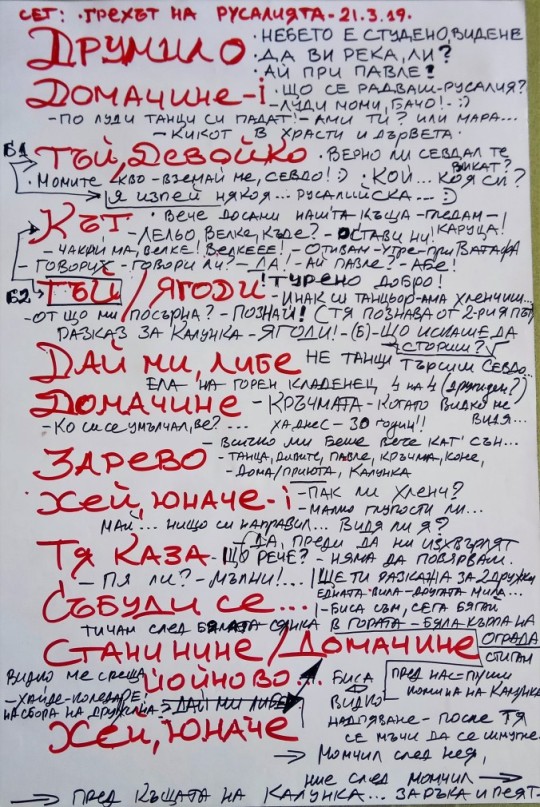 СЕТ: "ГРЕХЪТ НА РУСАЛИЯТА - 21.3.19.
ДРУМИЛО · НЕБЕТО Е СТУДЕНО, ВИДЕНЕ
· ДА ВИ РЕКА, ЛИ?
· АЙ ПРИ ПАВЛЕ!
ДОМАЧИНЕ-i · ЩО СЕ РАДВАШ-РУСАЛИЯ?
- ЛУДИ МОМИ, БАЧО! - :)
- ПО ЛУДИ ТАНЦИ СИ ПАДАТ! - АМИ ТИ? ИЛИ МАРА...
- КИКОТ В ХРАСТИ И ДЪРВЕТА ·
Б1 ТЪЙ, ДЕВОЙКО · ВЕРНО ЛИ СЕВДАЛ ТЕ ВИКАТ?
· МОМИТЕ - КВО - ВЗЕМАЙ МЕ, СЕВДО! :) · КОЙ... КОЯ СИ?
Я ИЗПЕЙ НЯКОЯ... РУСАЛИЙСКА... :)
КЪТ · ВЕЧЕ ДОСАМИ НАШ'ТА КЪЩА - ГЛЕДАМ - КАРУЦА!
- ЛЕЛЬО ВЕЛКЕ, КЪДЕ? - ОСТАВИ НИ!
- ЧАКРИ МА, ВЕЛКЕ! ВЕЛКЕЕЕ! - ОТИВАМ - УТРЕ - ПРИ ВАТАФА
- ГОВОРИХ - ГОВОРИ ЛИ? - ДА! - АИ ПАВЛЕ? - АБЕ!
Б2 ТЪЙ / ЯГОДИ ! ТУРЕНО ДОБРО!
- ИНАК ТАНЦЬОР - АМА ХЛЕНЧИШ...
- ОТ ЩО МИ ПОСЪРНА? - ПОЗНАЙ! (ТЯ ПОЗНАВА ОТ 2-РИЯ ПЪТ)
РАЗКАЗ ЗА КАЛУНКА - ЯГОДИ! - (Б) - ЩО ИСКАШЕ ДА
СТОРИШ?
ДАЙ МИ, ЛИБЕ НЕ ТАНЦИ ТЪРСИМ СЕВДО...
ЕЛА НА ГОРЕН КЛАДЕНЕЦ, 4 НА 4 (ДРУГИДЕН?)
ДОМАЧИНЕ - КРЪЧМАТА - КОГАТО ВИДКО МЕ ВИДЯ...
- КО СИ СЕ УМЪЛЧАЛ, ВЕ? ... ХА ДНЕС - 30 ГОДИН!!
- ВСИЧКО МИ БЕШЕ ВЕЧЕ КАТ' СЪН...
ЗАРЕВО - ТАНЦА, ДИВИТЕ, ПАВЛЕ, КРЪЧМА, КОНЕ,
- ДОМА/ПРИЮТА, КАЛУНКА
ХЕЙ, ЮНАЧЕ-i - ПАК ЛИ ХЛЕНЧ?
- МАЛКО ГЛУПОСТИ ЛИ...
МАЙ... НИЩО СИ НАПРАВИЛ... ВИДЯ ЛИ Я?
ТЯ КАЗА - ДА, ПРЕДИ ДА НИ ИЗХВЪРЛЯТ
- ЩО РЕЧЕ? - НЯМА ДА ПОВЯРВАМ.
- ПЯ ЛИ? - МЪЛЧИ! ... ЩЕ ТИ РАЗКАЖА ЗА 2 ДРУЖКИ
ЕДНАТА ВИЛА - ДРУГАТА МИЛА...
СЪБУДИ СЕ... - БИСА СЪМ, СЕГА БЯГАЙ
ТИЧАМ СЛЕД БЯЛАТА СЯНКА В ГОРАТА - БЯЛА КЪРПА НА
ОГРАДА
СТАНИ НИНЕ / ДОМАЧИНЕ СТИГАМ
ВИДКО МЕ СРЕЩА ЙОЙНОВО... БИСА ПРЕД НАС =
КОМИНА НА КАЛУНКА
- ХАЙДЕ - КОЛЕДАРЕ! ВИДКО
НА СБОРА НА ДРУЖИНА = ДАЙ МИ ЛИБЕ НАДПЯВАНЕ - ПОСЛЕ ТЯ
ХЕЙ, ЮНАЧЕ СЕ МЪЧИ ДА СЕ ШМУГНЕ.
→ МОМЧИЛ СЛЕД НЕЯ,
НИЕ СЛЕД МОМЧИЛ →
→ ПРЕД КЪЩАТА НА КАЛУНКА... ЗАРЪКА И ПЕЯТ.